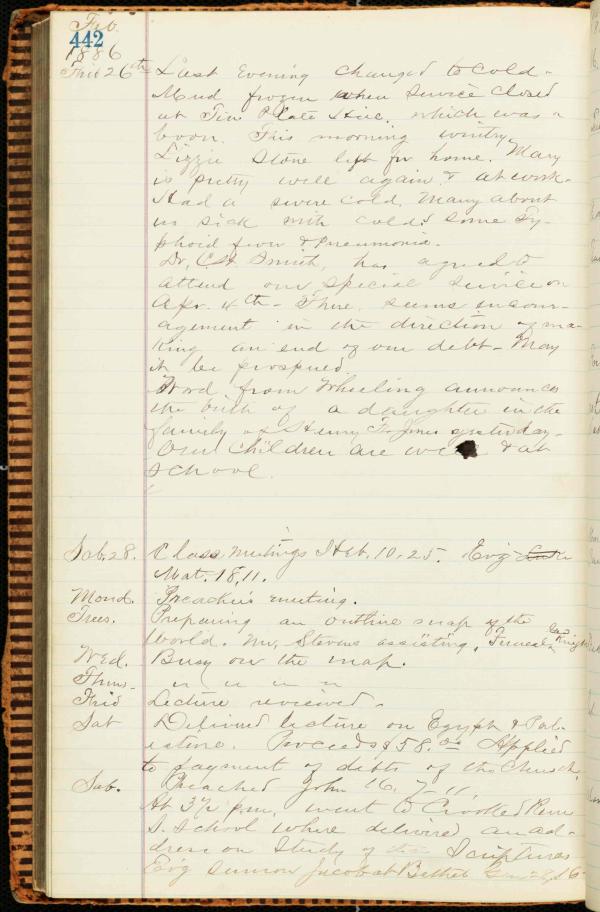 Feb.
442
1886
Frid 26th Last Evening changed to cold-
Mud frozen when service closed
at Tin Plate Hill. which was a
boon. This morning wintry.
Lizzie Stone left for home. Mary
is pretty well again & at work.
Had a severe cold. Many about
us sick with colds some Ty-
phoid fever & Pneumonia.
Dr. C.H. Smith, has agreed to
attend our special service on
Apr. 4th- There seems encour-
agement in the direction of ma-
king an end of our debt- May
it be prospered.
Word from Wheeling announces
the birth of a daughter in the
family of Henry F. Jones yesterday.
Our Children are well & at
school.
Sab. 28. Class meetings Heb. 10.25. Ev'g
Mat. 18,11.
Mond. Preacher's meeting.
Tues. Preparing an outline map of the
World. Mr. Stevens assisting.
Wed. Busy on the map.
Thurs- " " " "
Frid Lecture reviewed-
Sat Delivered lecture on Egypt & Pal-
estine. Proceeds $58.00 Applied
to payment of debts of the Church.
Sab. Preached John 16, 7-11.
At 3½ p.m. went to Crooked Run
S. School where delivered an ad-
dress on Study of the Scriptures
Ev'g sermon Jacob at Bethel Gen. 28,16-